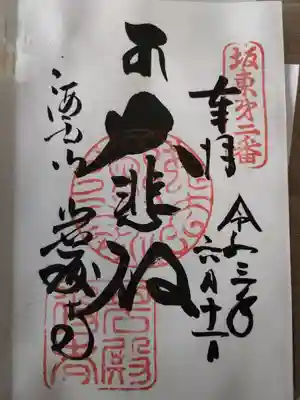 坂東第二番
奉拝
令和三年
六月十一日
大悲殿
海雲山
岩殿寺